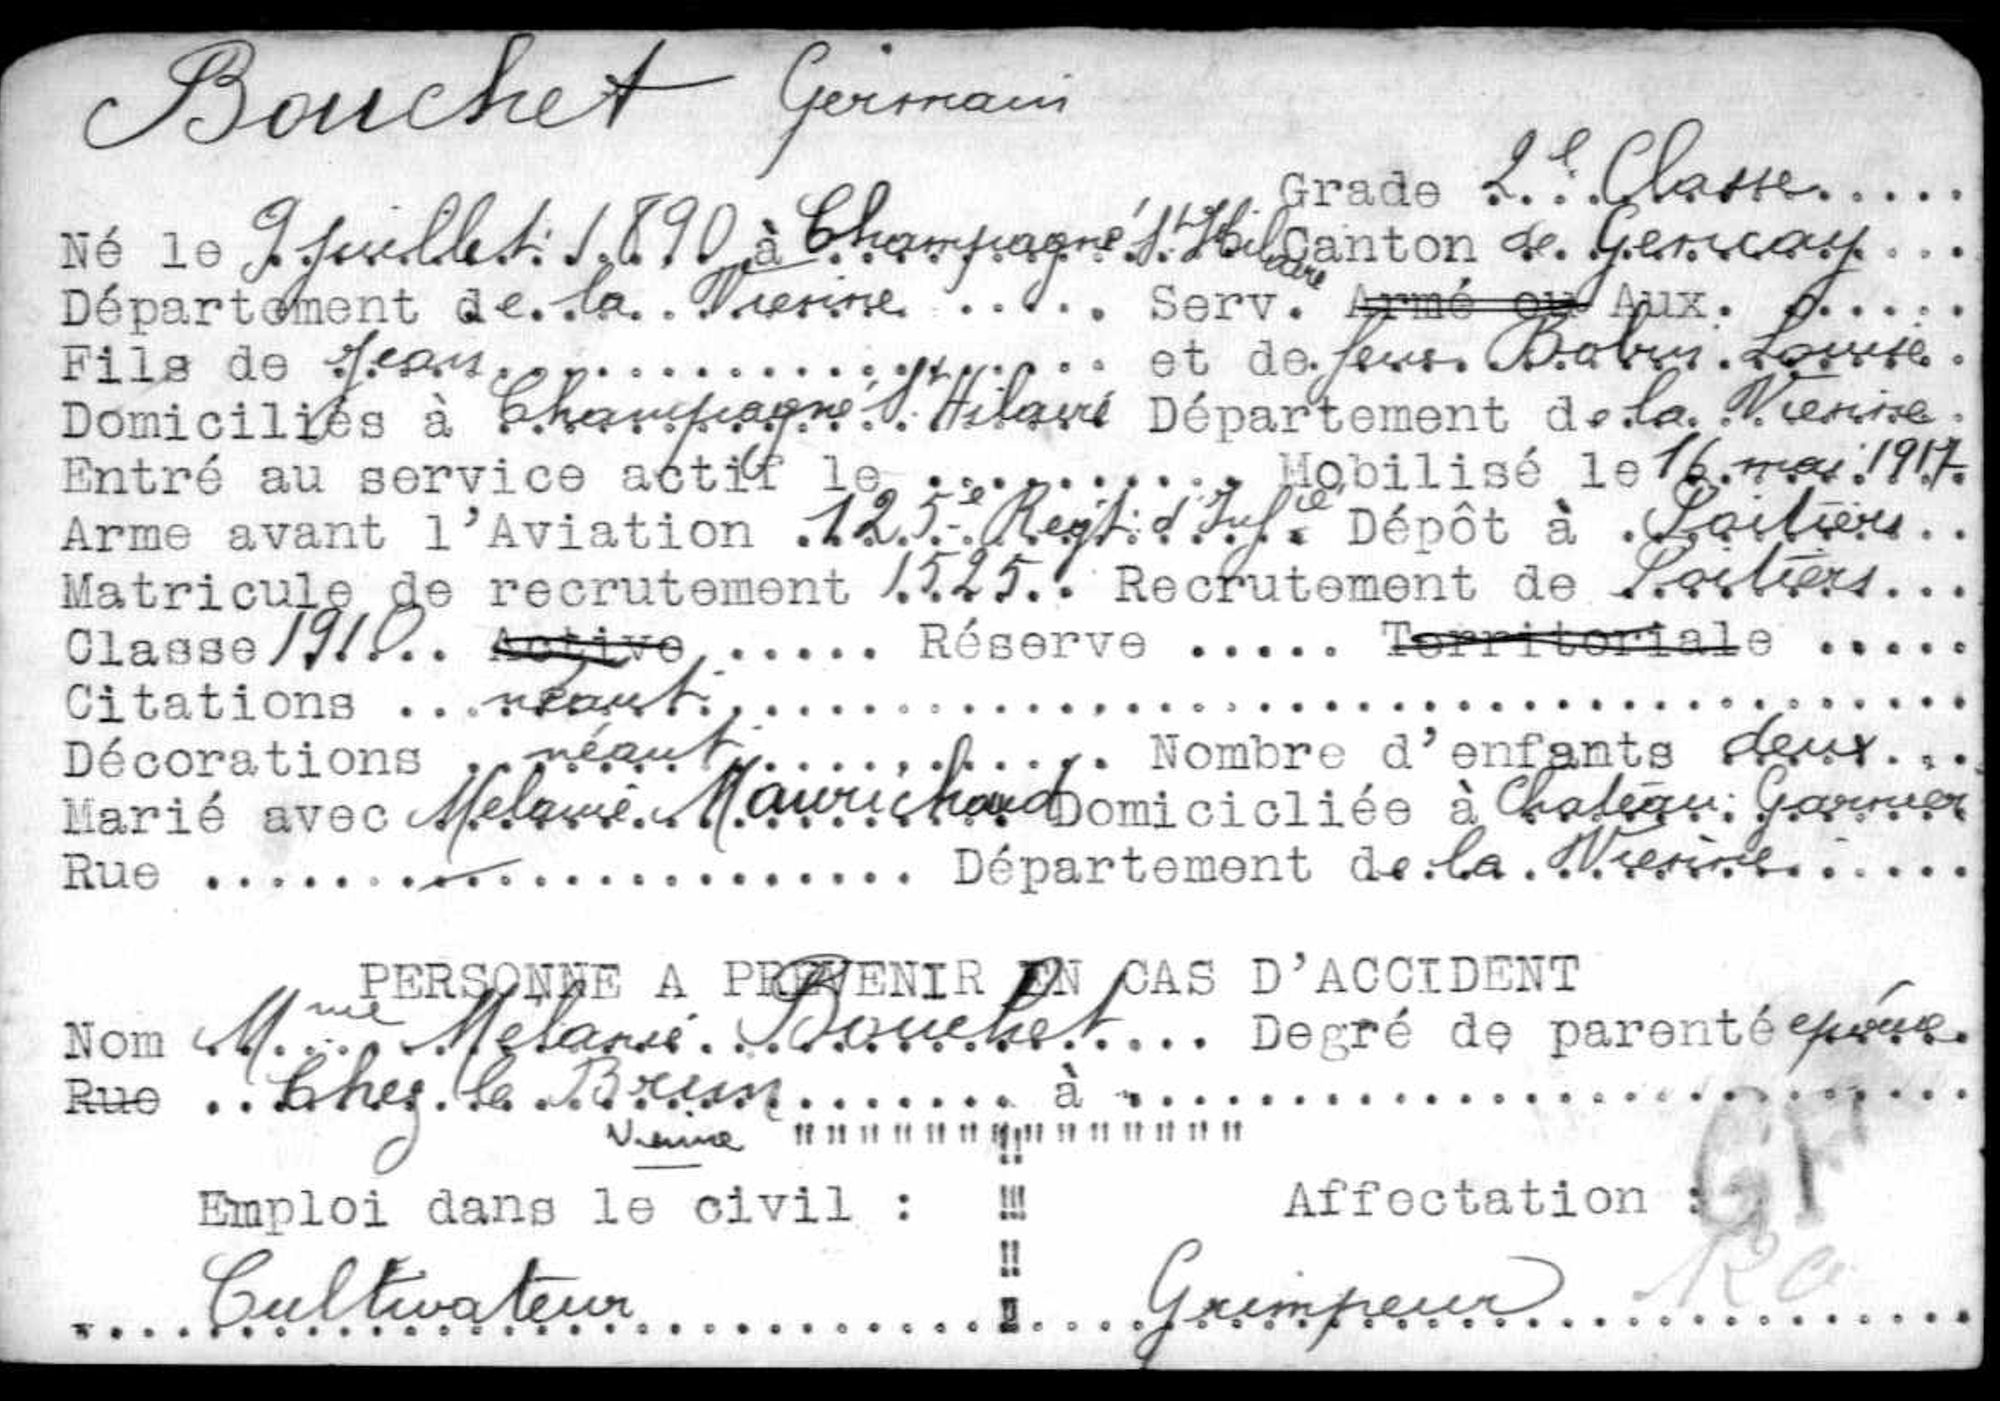 Bouchet Germain
Grade 2e Classe
Né le 9 juillet 1890 à Champagné St Hilaire Canton de Gencay
Département de la Vienne Serv. Armé ou Aux.
Fils de Jean et de feue Bobin Louise
Domiciliés à Champagné St Hilaire Département de la Vienne
Entré au service actif le .......... Mobilisé le 16 mai 1917
Arme avant l'Aviation 125e Regt d'Infie Dépôt à Poitiers
Matricule de recrutement 1525 Recrutement de Poitiers
Classe 1910 Active ..... Réserve ..... Territoriale .....
Citations néant
Décorations néant Nombre d'enfants deux
Marié avec Melanie Maurichaud Domicicliée à Chateau Garnier
Rue Département de la Vienne
PERSONNE A PREVENIR EN CAS D'ACCIDENT
Nom Mme Melanie Bouchet Degré de parenté epouse
Rue Chez le Brun à
Vienne
Emploi dans le civil : Affectation :
GF
Cultivateur Grimpeur